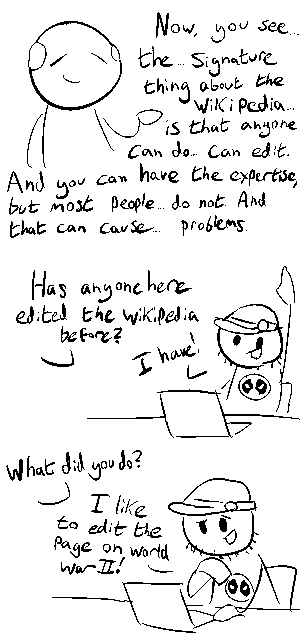 Now, you see...
the... Signature
thing about the
Wikipedia...
is that anyone
can do... can edit.
And you can have the expertise,
but most people... do not. And
that can cause... problems.
Has anyone here
edited the Wikipedia
before?
I have!
What did you do?
I like
to edit the
page on World
War II!